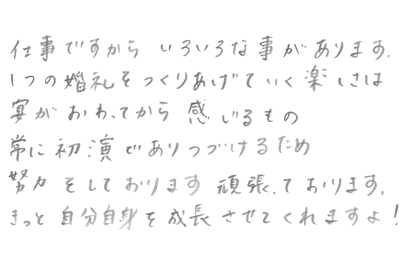 仕事ですから いろいろな事があります.
1つの婚礼をつくりあげていく楽しさは
宴がおわってから 感じるもの
常に初演でありつづけるため
努力をしております 頑張っております.
きっと自分自身を成長させてくれますよ！